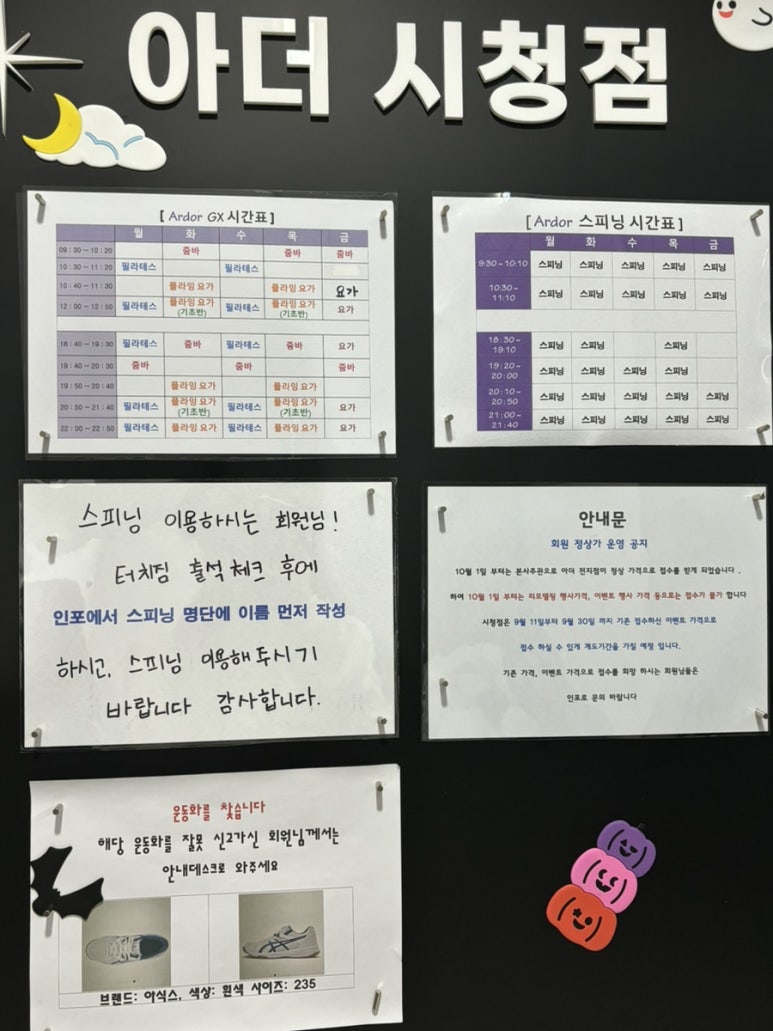 아더 시청점
[ Ardor GX 시간표 ]
월 화 수 목 금
09:30 ~ 10:20 줌바 줌바 줌바
10:30 ~ 11:20 필라테스 필라테스
10:40 ~ 11:30 플라잉 요가 플라잉 요가 요가
12:00 ~ 12:50 필라테스 플라잉 요가 (기초반) 필라테스 플라잉 요가 (기초반) 요가
18:40 ~ 19:30 필라테스 줌바 필라테스 줌바 요가
19:40 ~ 20:30 줌바 줌바 줌바
19:50 ~ 20:40 플라잉 요가 플라잉 요가
20:50 ~ 21:40 필라테스 플라잉 요가 (기초반) 필라테스 플라잉 요가 (기초반) 요가
22:00 ~ 22:50 필라테스 플라잉 요가 필라테스 플라잉 요가 요가
[ Ardor 스피닝 시간표 ]
월 화 수 목 금
9:30~10:10 스피닝 스피닝 스피닝 스피닝 스피닝
10:30~11:10 스피닝 스피닝 스피닝 스피닝 스피닝
18:30~19:10 스피닝 스피닝 스피닝
19:20~20:00 스피닝 스피닝 스피닝 스피닝
20:10~20:50 스피닝 스피닝 스피닝 스피닝 스피닝
21:00~21:40 스피닝 스피닝 스피닝 스피닝 스피닝
스피닝 이용하시는 회원님!
터치짐 출석체크 후에
인포에서 스피닝 명단에 이름 먼저 작성
하시고, 스피닝 이용해주시기
바랍니다 감사합니다.
안내문
회원 정상가 운영 공지
10월 1일 부터는 본사주관으로 아더 전지점이 정상 가격으로 접수를 받게 되었습니다 .
하여 10월 1일 부터는 리모델링 행사가격, 이벤트 행사 가격 등으로는 접수가 불가 합니다
시청점은 9월 11일부터 9월 30일 까지 기존 접수하신 이벤트 가격으로
접수 하실 수 있게 계도기간을 가질 예정 입니다.
기존 가격, 이벤트 가격으로 접수를 희망 하시는 회원님들은
인포로 문의 바랍니다
운동화를 찾습니다
해당 운동화를 잘못 신고가신 회원님께서는
안내데스크로 와주세요
브랜드: 아식스, 색상: 흰색 사이즈: 235